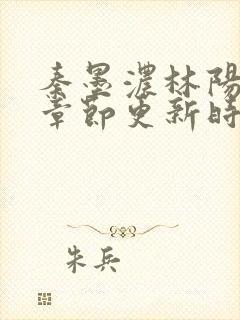 秦墨濃林陽
章節更新時
朱兵